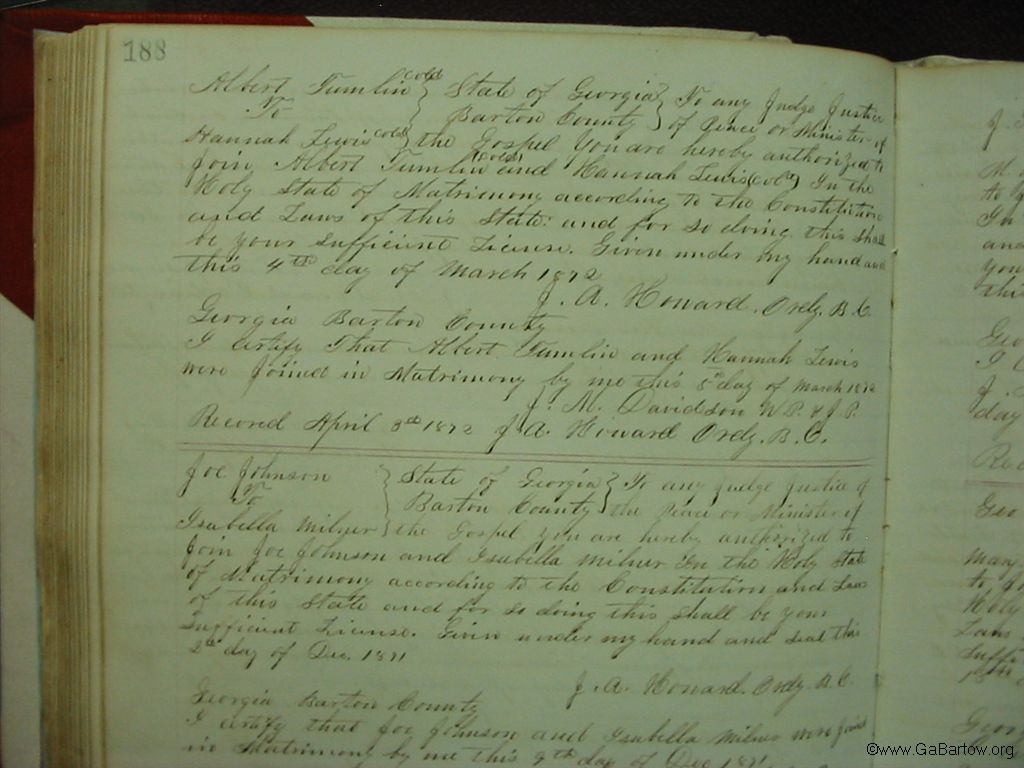 188
Albert Tumlin cold } State of Georgia } To any Judge Justice
To Barton County } of Peace or Minister of
Hannah Lewis cold } the Gospel You are hereby authorized to
Join Albert Tumlin (cold) and Hannah Lewis (cold) In the
Holy State of Matrimony according to the Constitution
and Laws of this State. and for so doing this shall
be your Sufficient License. Given under my hand and
this 4th day of March 1872
J. A. Howard. Ordy. B. C.
Georgia Barton County
I Certify That Albert Tumlin and Hannah Lewis
were Joined in Matrimony by me this 5th day of March 1872
J. M. Davidson N. P. & J. P.
Record April 3rd 1872 J. A. Howard Ordy. B. C.
Joe Johnson } State of Georgia } To any Judge Justice of
To Barton County } the Peace or Minister of
Isabella Milner } the Gospel you are hereby authorized to
Join Joe Johnson and Isabella Milner In the Holy State
of Matrimony according to the Constitution and Laws
of this State and for so doing this shall be your
Sufficient License. Given under my hand and Seal this
2nd day of Dec. 1871
J. A. Howard. Ordy. B. C.
Georgia Barton County
I Certify that Joe Johnson and Isabella Milner were Joined
in Matrimony by me this 9th day of Dec 1871
©www.GaBartow.org